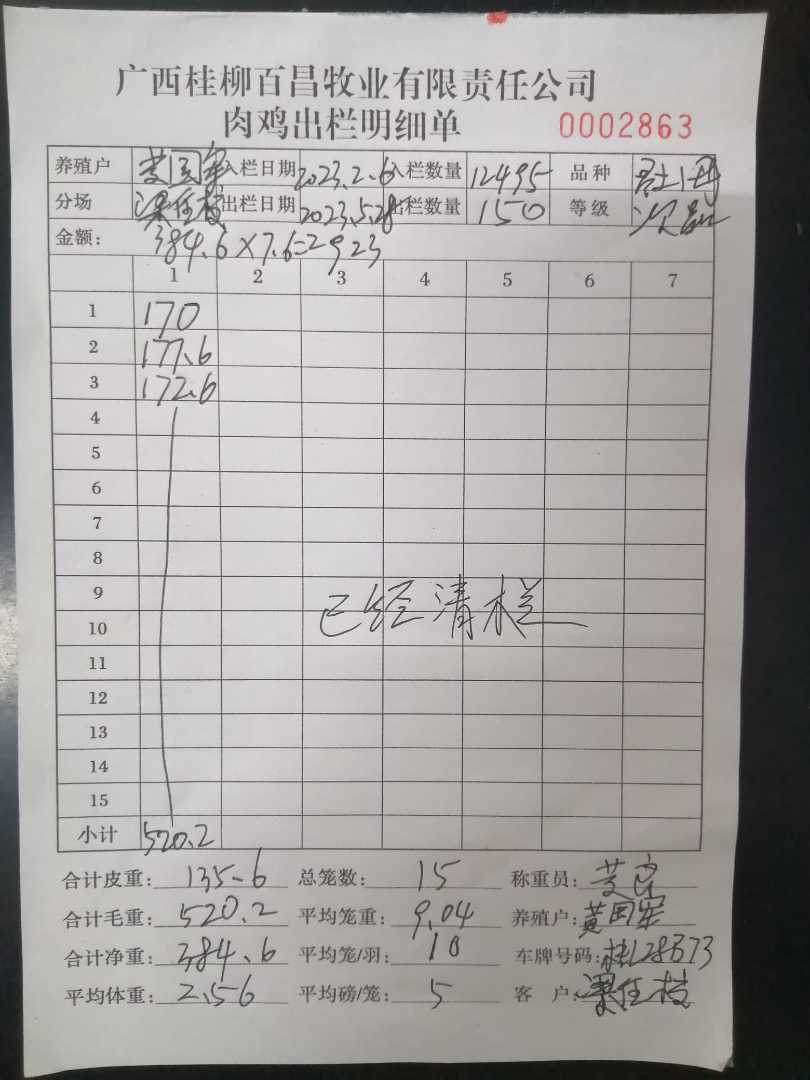 广西桂柳百昌牧业有限责任公司
肉鸡出栏明细单 0002863
养殖户 黄国军 入栏日期 2023.2.6 入栏数量 12495 品种
分场 出栏日期 2023.5.28 出栏数量 150 等级 次品
金额: 384.6×7.6=2923
1 2 3 4 5 6 7
1 170
2 177.6
3 172.6
4
5
6
7
8
9 已经清栏
10
11
12
13
14
15
小计 520.2
合计皮重: 135.6 总笼数: 15 称重员:
合计毛重: 520.2 平均笼重: 9.04 养殖户: 黄国军
合计净重: 384.6 平均笼/羽: 10 车牌号码: 桂L28B73
平均体重: 2.56 平均磅/笼: 5 客户: